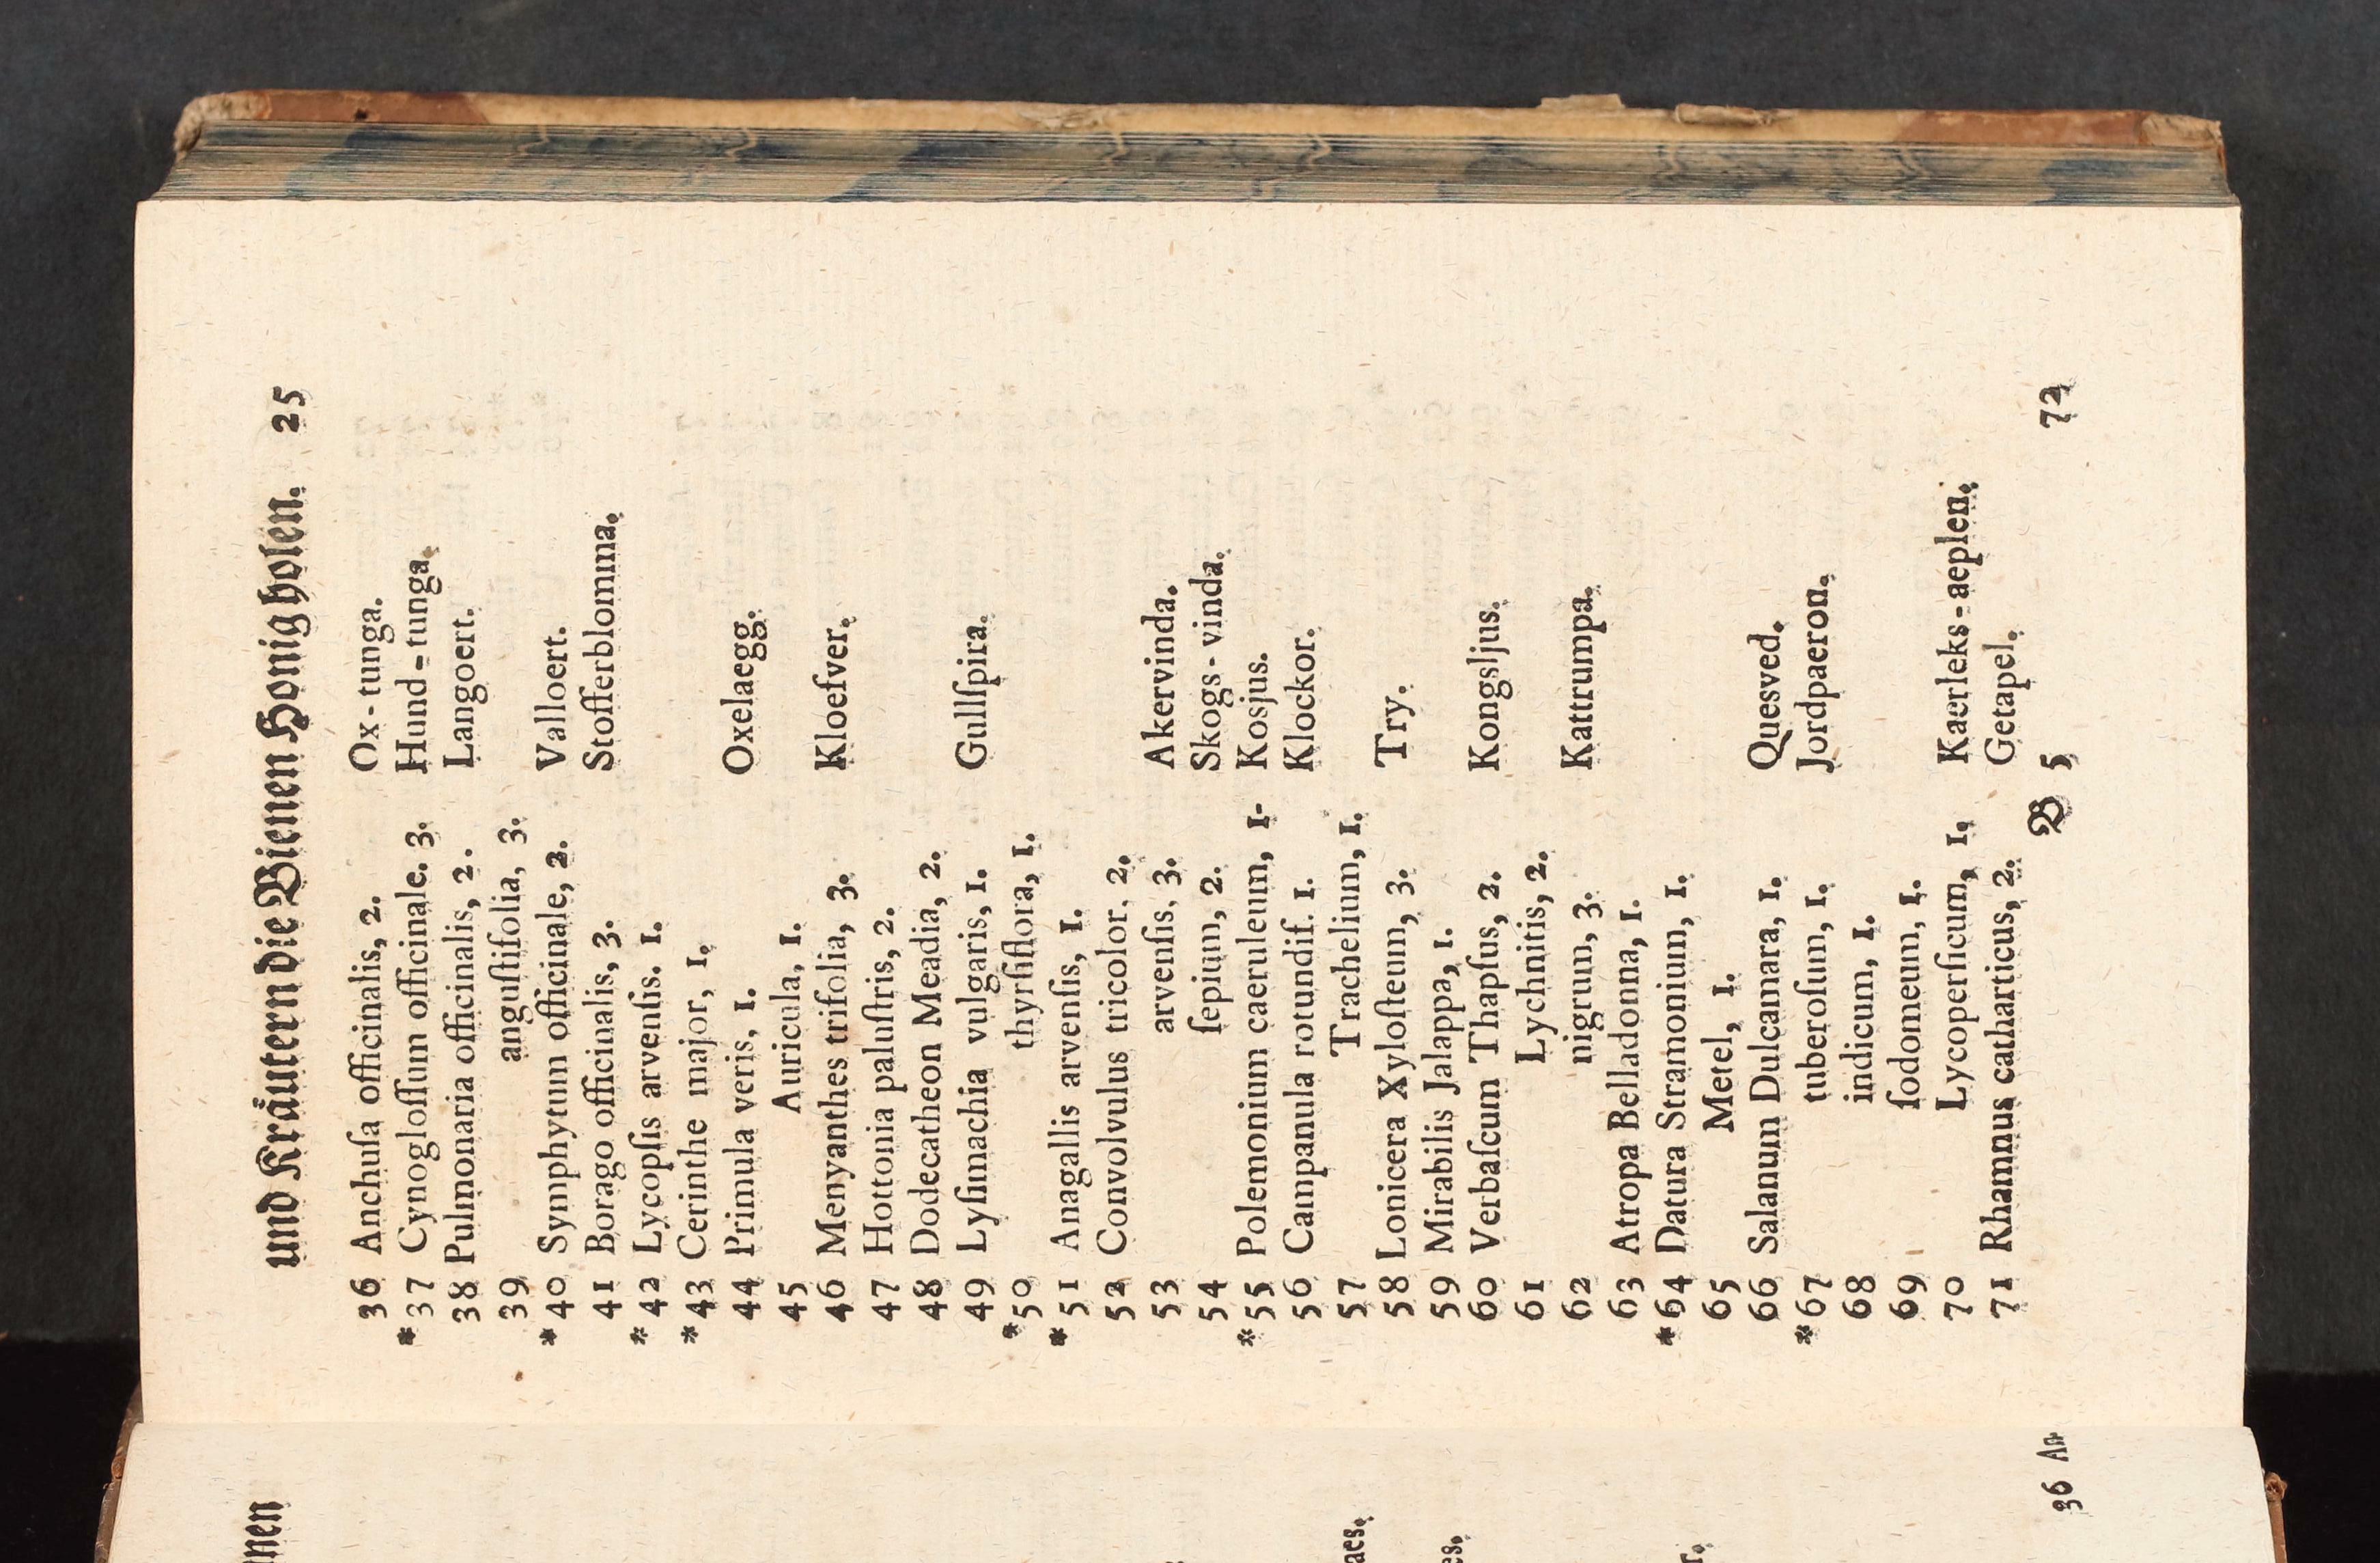 und Kräutern die Bienen Honig holen. 25
36 Anchuſa officinalis, 2. Ox-tunga.
* 37 Cynogloſſum officinale. 3. Hund-tunga.
38 Pulmonaria officinalis, 2. Langoert.
39 anguſtifolia, 3.
* 40 Symphytum officinale, 2. Valloert.
41 Borago officinalis, 3. Stofferblomma.
* 42 Lycopſis arvenſis. 1.
* 43 Cerinthe major, 1.
44 Primula veris, 1. Oxelaegg.
45 Auricula, 1.
46 Menyanthes trifolia, 3. Kloefver.
47 Hottonia paluſtris, 2.
48 Dodecatheon Meadia, 2.
49 Lyſimachia vulgaris, 1. Gullſpira.
* 50 thyrſiflora, 1.
* 51 Anagallis arvenſis, 1.
52 Convolvulus tricolor, 2.
53 arvenſis, 3. Akervinda.
54 ſepium, 2. Skogs-vinda.
* 55 Polemonium caeruleum, 1- Kosjus.
56 Campanula rotundif. 1. Klockor.
57 Trachelium, 1.
58 Lonicera Xyloſteum, 3. Try.
59 Mirabilis Jalappa, 1.
60 Verbaſcum Thapſus, 2. Kongsljus.
61 Lychnitis, 2.
62 nigrum, 3. Kattrumpa.
63 Atropa Belladonna, 1.
* 64 Datura Stramonium, 1.
65 Metel, 1.
66 Salanum Dulcamara, 1. Quesved.
* 67 tuberoſum, 1. Jordpaeron.
68 indicum, 1.
69 ſodomeum, 1.
70 Lycoperſicum, 1. Kaerleks-aeplen.
71 Rhamnus catharticus, 2. Getapel.
B 5 72
nen
aes.
es.
r.
36 An